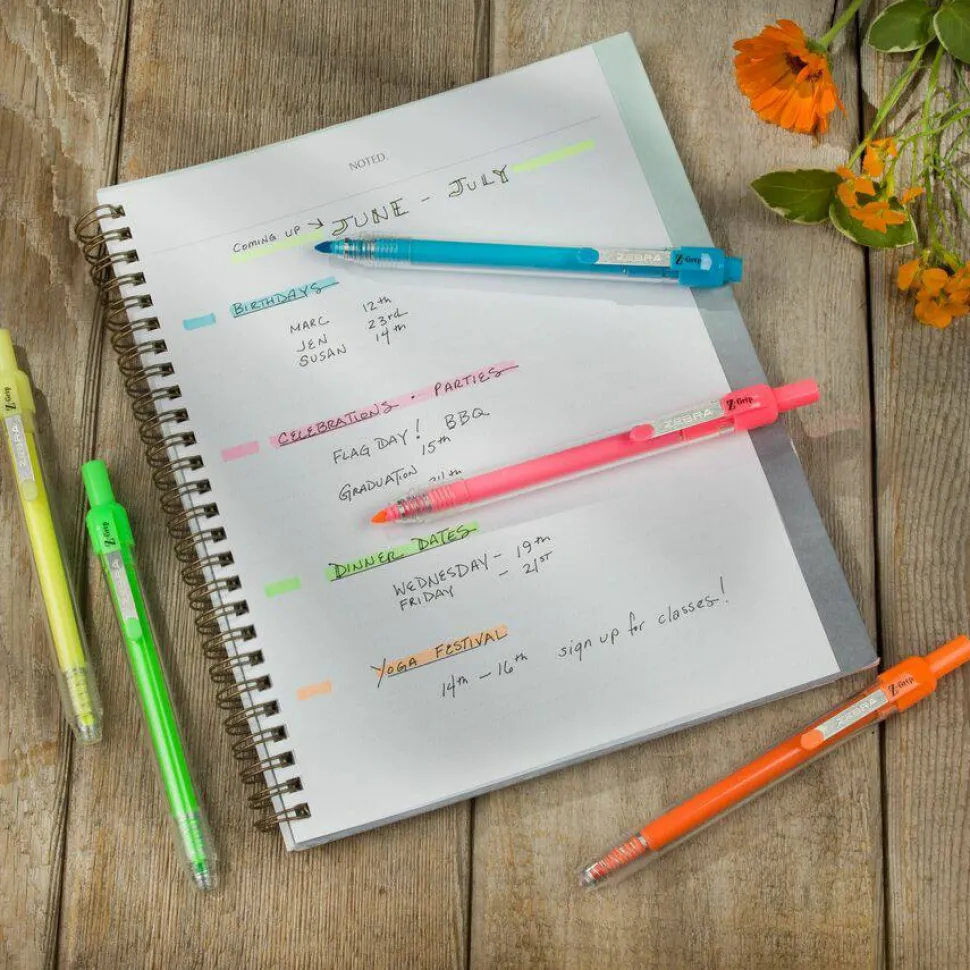 NOTED.
COMING UP → JUNE - JULY
BIRTHDAYS
MARC 12th
JEN 23rd
SUSAN 14th
CELEBRATIONS . PARTIES
FLAG DAY! BBQ
15th
GRADUATION
DINNER DATES
WEDNESDAY - 19th
FRIDAY - 21st
YOGA FESTIVAL
14th - 16th sign up for classes!
ZEBRA Z-Grip
ZEBRA Z-Grip
ZEBRA Z-Grip
ZEBRA Z-Grip
Z-Grip